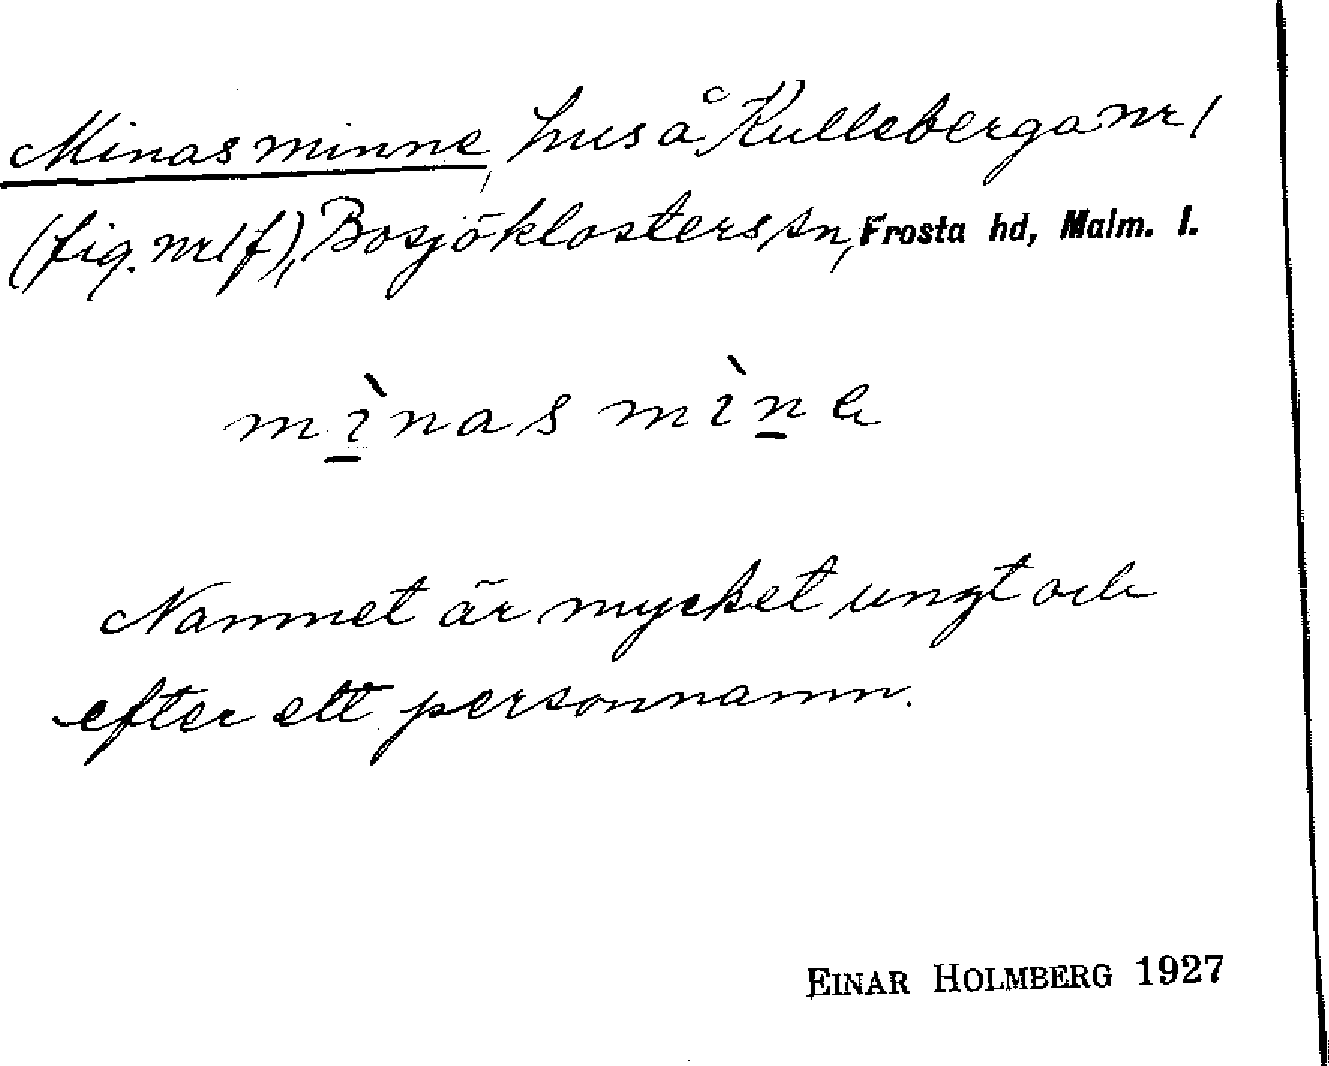 Minas minne, hus å Kulleberga nr 1
(fig. nr 1 f), Bosjöklosters sn, Frosta hd, Malm. l.
mìnas mìnə
Namnet är mycket ungt och
efter ett personnamn.
EINAR HOLMBERG 1927